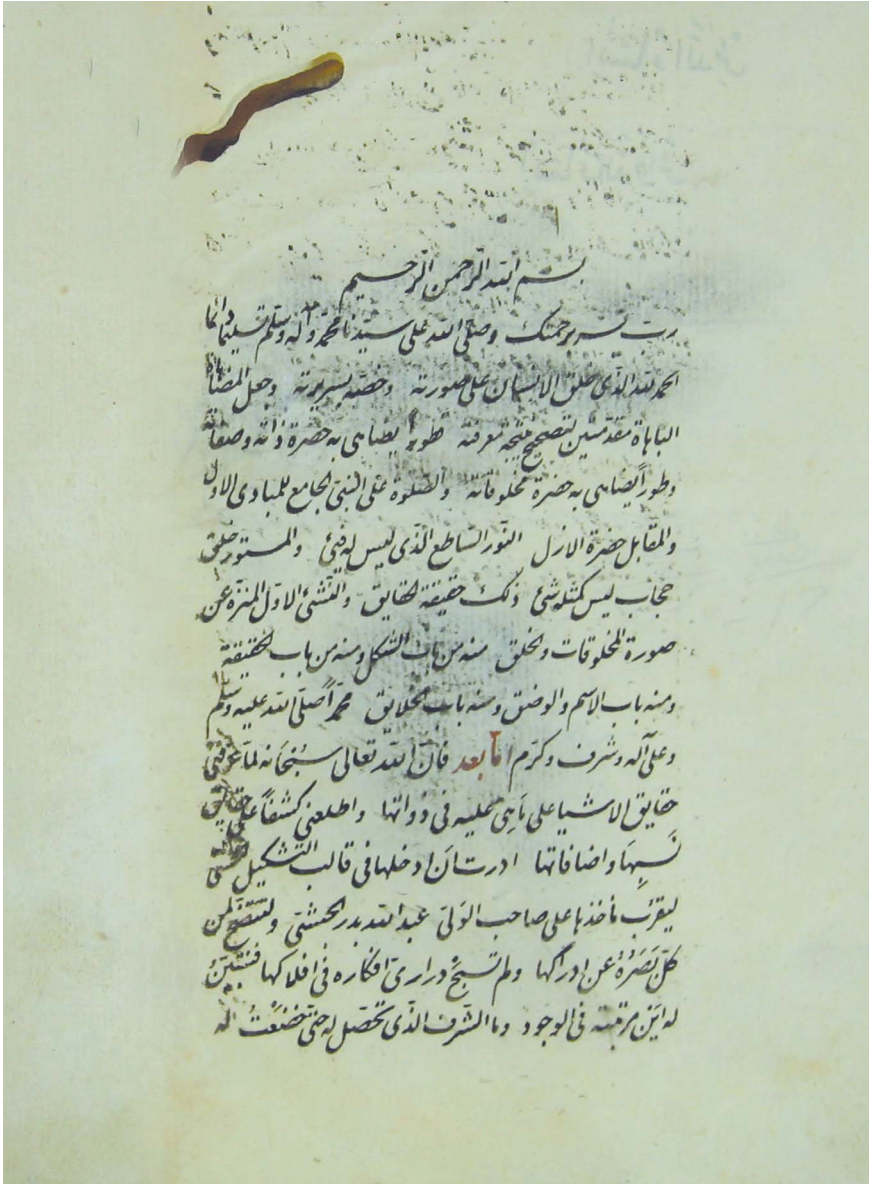 بسم الله الرحمن الرحيم
رب يسر برحمتك وصلى الله على سيدنا محمد وآله وسلم تسليما دائما
الحمد لله الذى خلق الانسان على صورته وخصه بسريرته وجعل المضاهاة
المباهاة مقدمتين لتصحيح نتيجة معرفته طورا يضاهى به حضرة ذاته وصفاته
وطورا يضاهى به حضرة مخلوقاته والصلوة على النبى الجامع للمبادى الاول
والمقابل حضرة الازل النور الساطع الذى ليس له فئ والمستور خلق
حجاب ليس كمثله شئ ذلك حقيقة الحقايق والنشئ الاول المنزه عن
صورة المخلوقات والخلق منه من باب الشكل ومنه من باب الحقيقة
ومنه باب الاسم والوصف ومنه باب الخلايق محمدا صلى الله عليه وسلم
وعلى آله وشرف وكرم اما بعد فان الله تعالى سبحانه لما عرفنى
حقايق الاشيا على ماهى عليه فى ذواتها واطلعنى كشفا على حقايق
نسبها واضافاتها ادرت ان ادخلها فى قالب التشكيل الحسى
ليقرب مأخذها على صاحب الولى عبد الله بدر الحبشى ولتتضح لمن
كل بصره عن ادراكها ولم تسبح درارى افكاره فى افلاكها فتتبين
له اين مرتبته فى الوجود وما الشرف الذى تحصل له حتى خضعت له